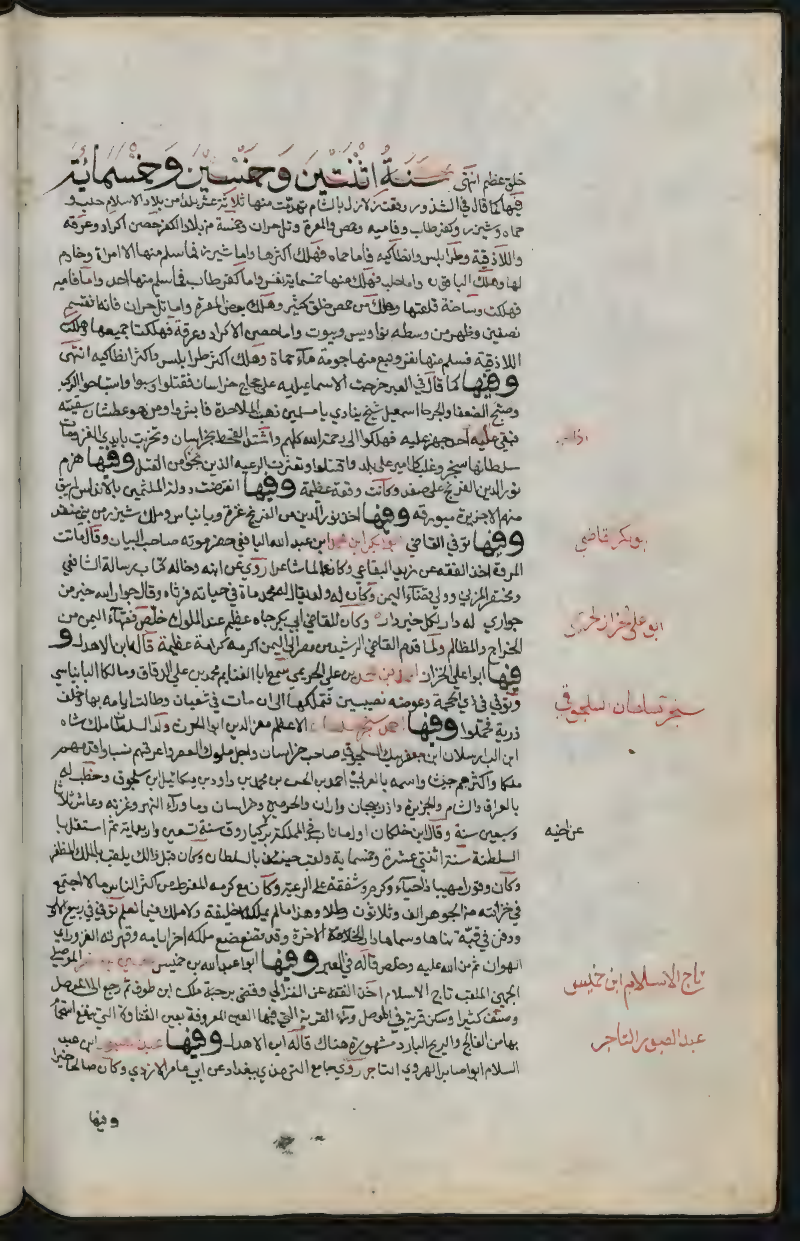 خلق عظيم انتهى سنة اثنتين وخمسين وخمسمائة
فيها كما قال في الشذور وقعت زلازل بالشام تهدمت منها ثلاثة عشر بلدا من بلاد الاسلام حلب و
حماه وشيزر وكفرطاب وفاميه وحمص والمعرة وتل حران وخمسة من بلاد الكفر حصن اكراد وعرقه
واللاذقية وطرابلس وانطاكيه فاما حماه فهلك اكثرها واما شيزر فما سلم منها الا امراة وخادم
لها وهلك الباقون واما حلب فهلك منها خمسماية نفس واما كفرطاب فما سلم منها احد واما فاميه
فهلكت وساخة قلعتها وهلك من حمص خلق كثير وهلك بعض المعرة واما تل حران فانه انقسم
نصفين وظهر من وسطه نواويس وبيوت واما حصن الاكراد وعرقة فهلكتا جميعها وهلكت
اللاذقية فسلم منها نفر ونبع منها جومة ماء حماة وهلك اكثر طرابلس واكثر انطاكيه انتهى
وفيها كما قال في العبر خرجت الاسماعيليه على حجاج خراسان فقتلوا وسبوا واستباحوا الركب
وصبح الضعفا والجرحا اسمعيل شيخ ينادي يا مسلمين ذهب الملاحدة فابشروا ومن هو عطشان سقيته
فبقي كلمه احد جهز عليه فهلكوا الى رحمة الله كلهم واشتد القحط بخراسان وتخربت بايدي الغز ومات
سلطانها سنجر وغلب كل امير على بلد واقتتلوا وتعثرت الرعيه الذين نجوا من القتل وفيها هزم
نور الدين الفرنج على صفد وكانت وقعة عظيمة وفيها انقرضت دولة الملثمين بالاندلس لم يبق
منهم الا جزيرة ميورقه وفيها اخذ نور الدين من الفرنج غزة وبانياس وملك شيزر من بني منقذ
وفيها توفي القاضي ابو بكر ابن عبد الله اليافعي حضر موته صاحب البيان وقال ماتت
المروة اخذ الفقه عن زيد البقاعي وكان عالما شاعرا روى عن ابنه وخاله كتاب رسالة الشافعي
ومختصر المزني وولي قضاء اليمن وكان له ولد يقال له محمد مات في حياته فرثاه وقال جوار الله خير من
جواري له دار بكل خير دار وكان للقاضي ابي بكر جاه عظيم عند الملوك خلص فقهاء اليمن من
الخراج والمظالم ولما قدم القاضي الرشيد من مصر الى اليمن اكرمه كرامة عظيمة قاله ابن الاهدل و
فيها ابو علي الخزاز بن علي الحريمي سمع ابا الغنايم محمد بن علي الدقاق ومالكا البانياسي
وتوفي في ذي الحجة وعوضه نصيبين فتملكها الى ان مات في شعبان وطالت ايامه بها وخلف
ذرية فخملوا وفيها احمد سنجر الاعظم معز الدين ابو الحرث ولد السلطان ملك شاه
ابن الب ارسلان ابن جغريبك السلجوقي صاحب خراسان واجل ملوك العصر واعرقهم نسبا واقدمهم
ملكا واكثرهم جيشا واسمه بالعربي احمد بن الحسن بن محمد بن داود بن ميكائيل ابن سلجوق وخطب له
بالعراق والشام والجزيرة واذربيجان واران والحرمين وخراسان وما وراء النهر وغزنه وعاش ثلاثا
وسبعين سنة وقال ابن خلكان اول ما ناب في المملكة عن اخيه بركياروق سنة تسعين واربعماية ثم استقل با
السلطنة سنة اثنتي عشرة وخمسماية ولقب حينئذ بالسلطان وكان قبل ذالك يلقب بالملك المظفر
وكان وقورا مهيبا ذا حياء وكرم وشفقة على الرعية وكان مع كرمه المفرط من اكثر الناس مالا اجتمع
في خزانته من الجوهر الف وثلاثون رطلا وهذا ما لم يملكه خليفة ولا ملك فيما نعلم توفي في ربيع الاول
ودفن في قبة بناها وسماها دار الاخرة وقد تضعضع ملكه اخر ايامه وقهرته الغز وراى
الهوان ثم من الله عليه وخلص قاله في العبر وفيها ابو عبد الله بن خميس الموصلي
الجهني الملقب تاج الاسلام اخذ الفقه عن الغزالي وقضى برحبة ملك ابن طوق ثم رجع الى الموصل
وصنف كثيرا وسكن قرية في الموصل وراء القرية التي فيها العين المعروفة بعين القيارة التي ينفع استحما
بها من الفالج والريح البارد مشهورة هناك قاله ابن الاهدل وفيها عبد الصبور ابن عبد
السلام ابو صابر الهروي التاجر روى جامع الترمذي ببغداد عن ابي عامر الازدي وكان صالحا خيرا
وفيها
بو بكر قاضي
ابو علي خزاز الحريمي
سنجر سلطان سلجوقي
عن اخيه
تاج الاسلام ابن خميس
عبد الصبور التاجر